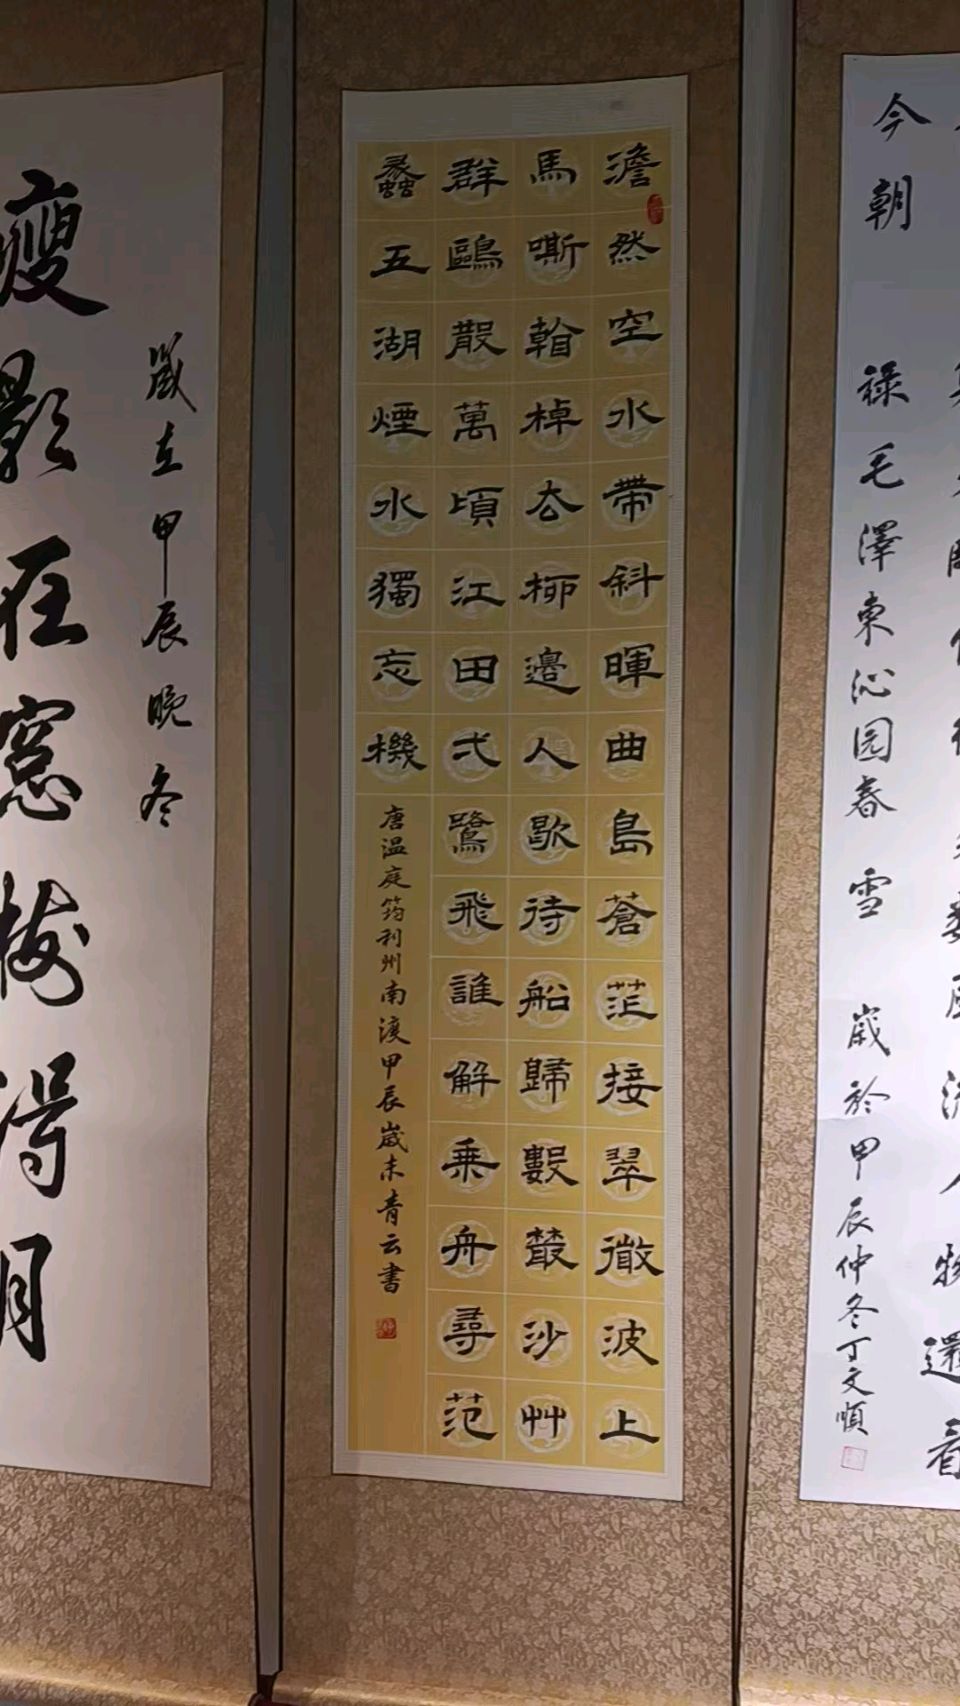 風流人物還看
今朝 錄毛澤東沁园春 雪 歲於甲辰仲冬丁文順
澹然空水帶斜暉曲島蒼茫接翠微波上
馬嘶看棹去柳邊人歇待船歸數叢沙艸
群鷗散萬頃江田弌鷺飛誰解乘舟尋范
蠡五湖煙水獨忘機
唐温庭筠利州南渡甲辰歲末青云書
瘦影在窓梅得月
歲立甲辰晚冬